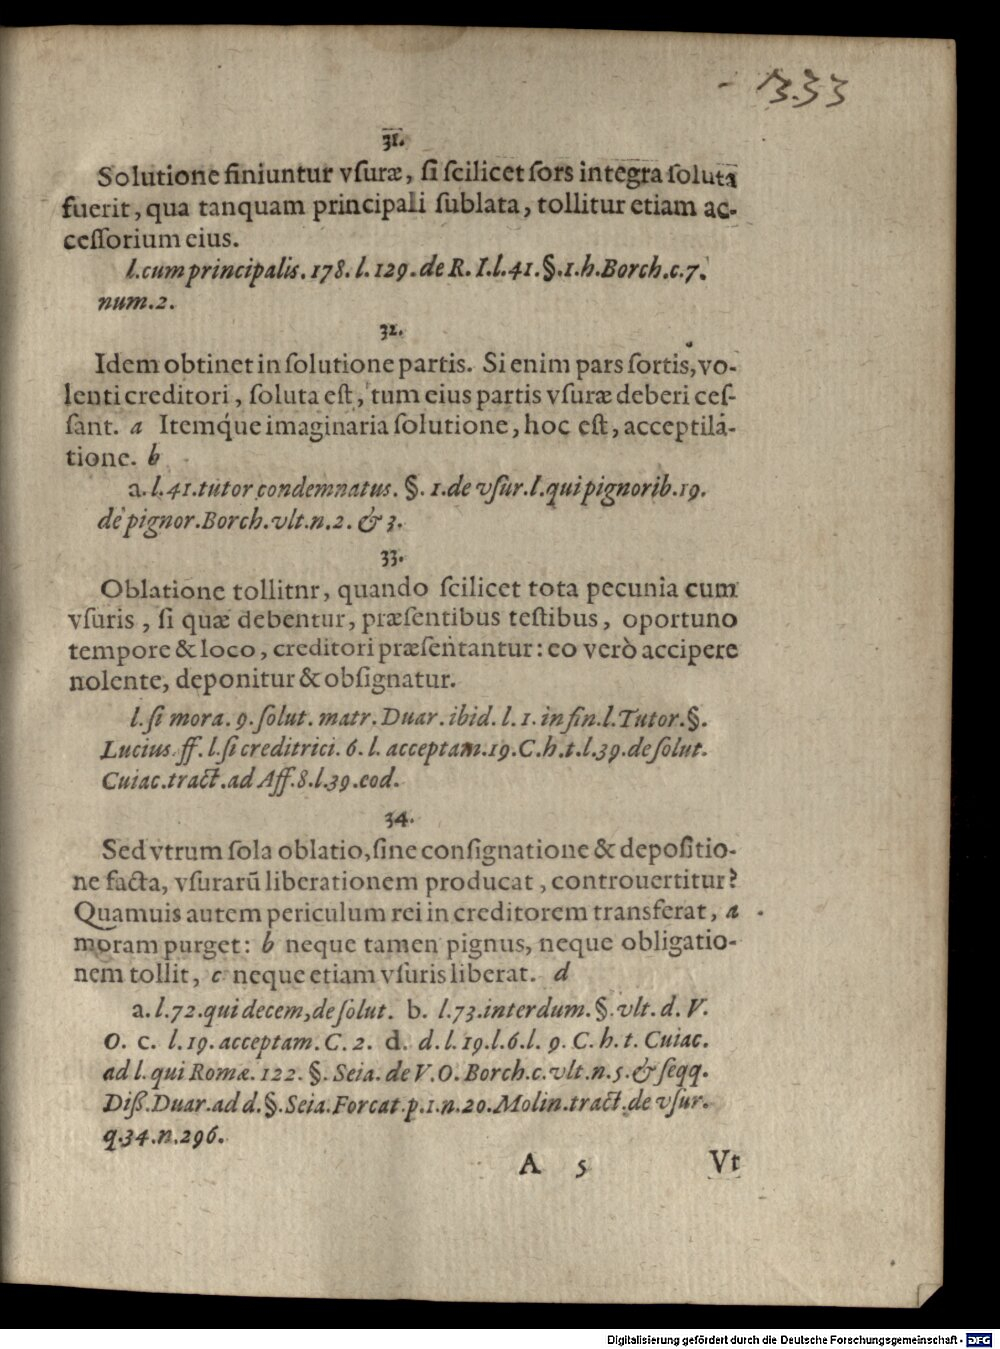 - 1333
31.
Solutione finiuntur vſuræ, ſi ſcilicet ſors integra ſoluta
fuerit, qua tanquam principali ſublata, tollitur etiam ac-
ceſſorium eius.
l. cum principalis. 178. l. 129. de R. I. l. 41. §. 1. h. Borch. c. 7.
num. 2.
32.
Idem obtinet in ſolutione partis. Si enim pars ſortis, vo-
lenti creditori, ſoluta eſt, tum eius partis vſuræ deberi ceſ-
ſant. a Itemq́ue imaginaria ſolutione, hoc eſt, acceptila-
tione. b
a. l. 41. tutor condemnatus. §. 1. de vſur. l. qui pignorib. 19.
de pignor. Borch. vlt. n. 2. & 3.
33.
Oblatione tollitnr, quando ſcilicet tota pecunia cum
vſuris, ſi quæ debentur, præſentibus teſtibus, oportuno
tempore & loco, creditori præſentantur: eo verò accipere
nolente, deponitur & obſignatur.
l. ſi mora. 9. ſolut. matr. Duar. ibid. l. 1. in fin. l. Tutor. §.
Lucius. ff. l. ſi creditrici. 6. l. acceptam. 19. C. h. t. l. 39. de ſolut.
Cuiac. tract. ad Aff. 8. l. 39. eod.
34.
Sed vtrum ſola oblatio, ſine conſignatione & depoſitio-
ne facta, vſurarũ liberationem producat, controuertitur?
Quamuis autem periculum rei in creditorem transferat, a
moram purget: b neque tamen pignus, neque obligatio-
nem tollit, c neque etiam vſuris liberat. d
a. l. 72. qui decem, de ſolut. b. l. 73. interdum. §. vlt. d. V.
O. c. l. 19. acceptam. C. 2. d. d. l. 19. l. 6. l. 9. C. h. t. Cuiac.
ad l. qui Romæ. 122. §. Seia. de V. O. Borch. c. vlt. n. 5. & ſeqq.
Diß. Duar. ad d. §. Seia. Forcat. p. 1. n. 20. Molin. tract. de vſur.
q. 34. n. 296.
A 5 Vt
Digitalisierung gefördert durch die Deutsche Forschungsgemeinschaft - DFG